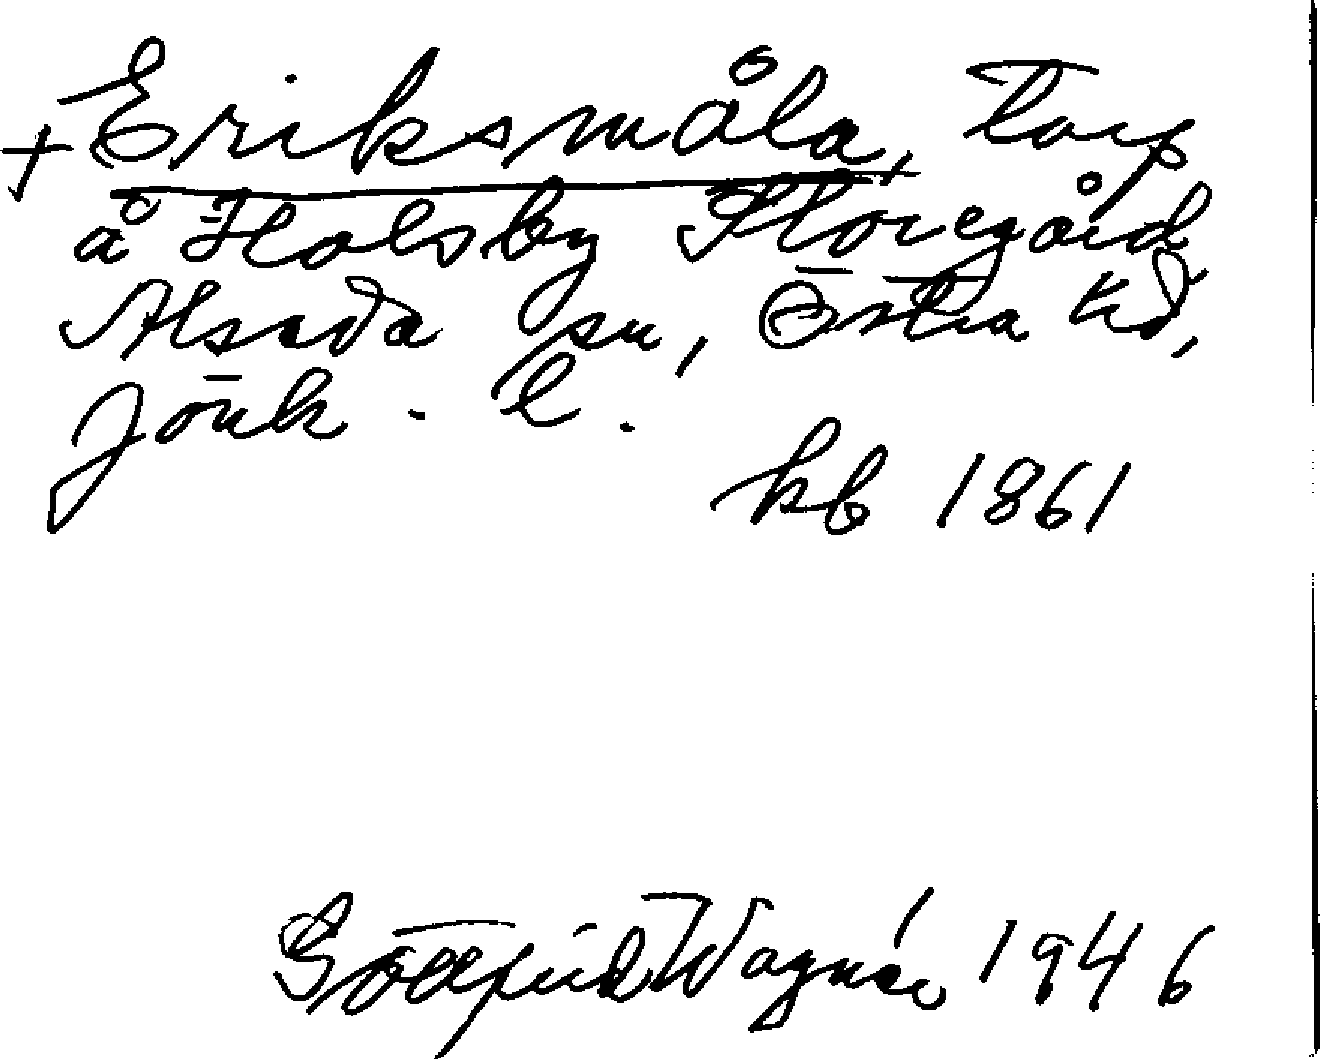 + Eriksmåla, torp
å Holsby Storegård,
Alseda sn, Östra hd,
Jönk. l.
kb 1861
Gottfrid Wagnér 1946